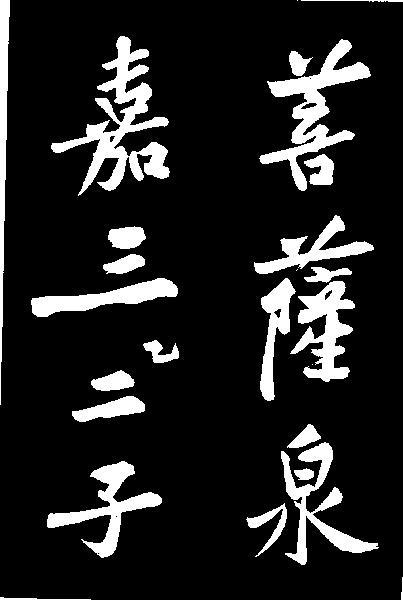 菩薩泉
嘉三二子